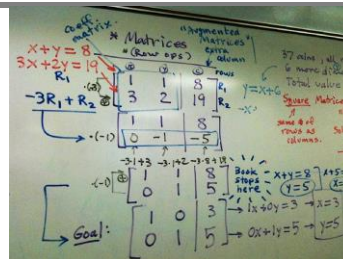 coeff. matrix.
* Matrices
* (Row ops)
"Augmented Matrices"
extra column
rows
x+y = 8
3x+2y = 19
[ 1 1 | 8 ] R₁
[ 3 2 | 19 ] R₂
R₁
-3R₁ + R₂
·(-3)
[ 1 1 | 8 ]
·(-1) [ 0 -1 | -5 ]
-3·1+3 -3·1+2 -3·8+19
·(-1)
[ 1 1 | 8 ]
[ 0 1 | 5 ]
Book stops here
x+y = 8
y=5
x+5=
Goal:
[ 1 0 | 3 ] → 1x+0y=3 → x=3
[ 0 1 | 5 ] → 0x+1y=5 → y=5
y = x+6
-x
37 coins, all
6 more di
Total value
Square Matric
same # of
rows as
columns.